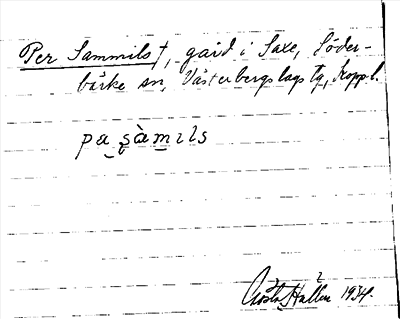 Per Sammils†, gård i Saxe, Söder-
bärke sn, Västerbergslags tg, Koppl.
pa sàmıls
Gösta Hallen 1934.